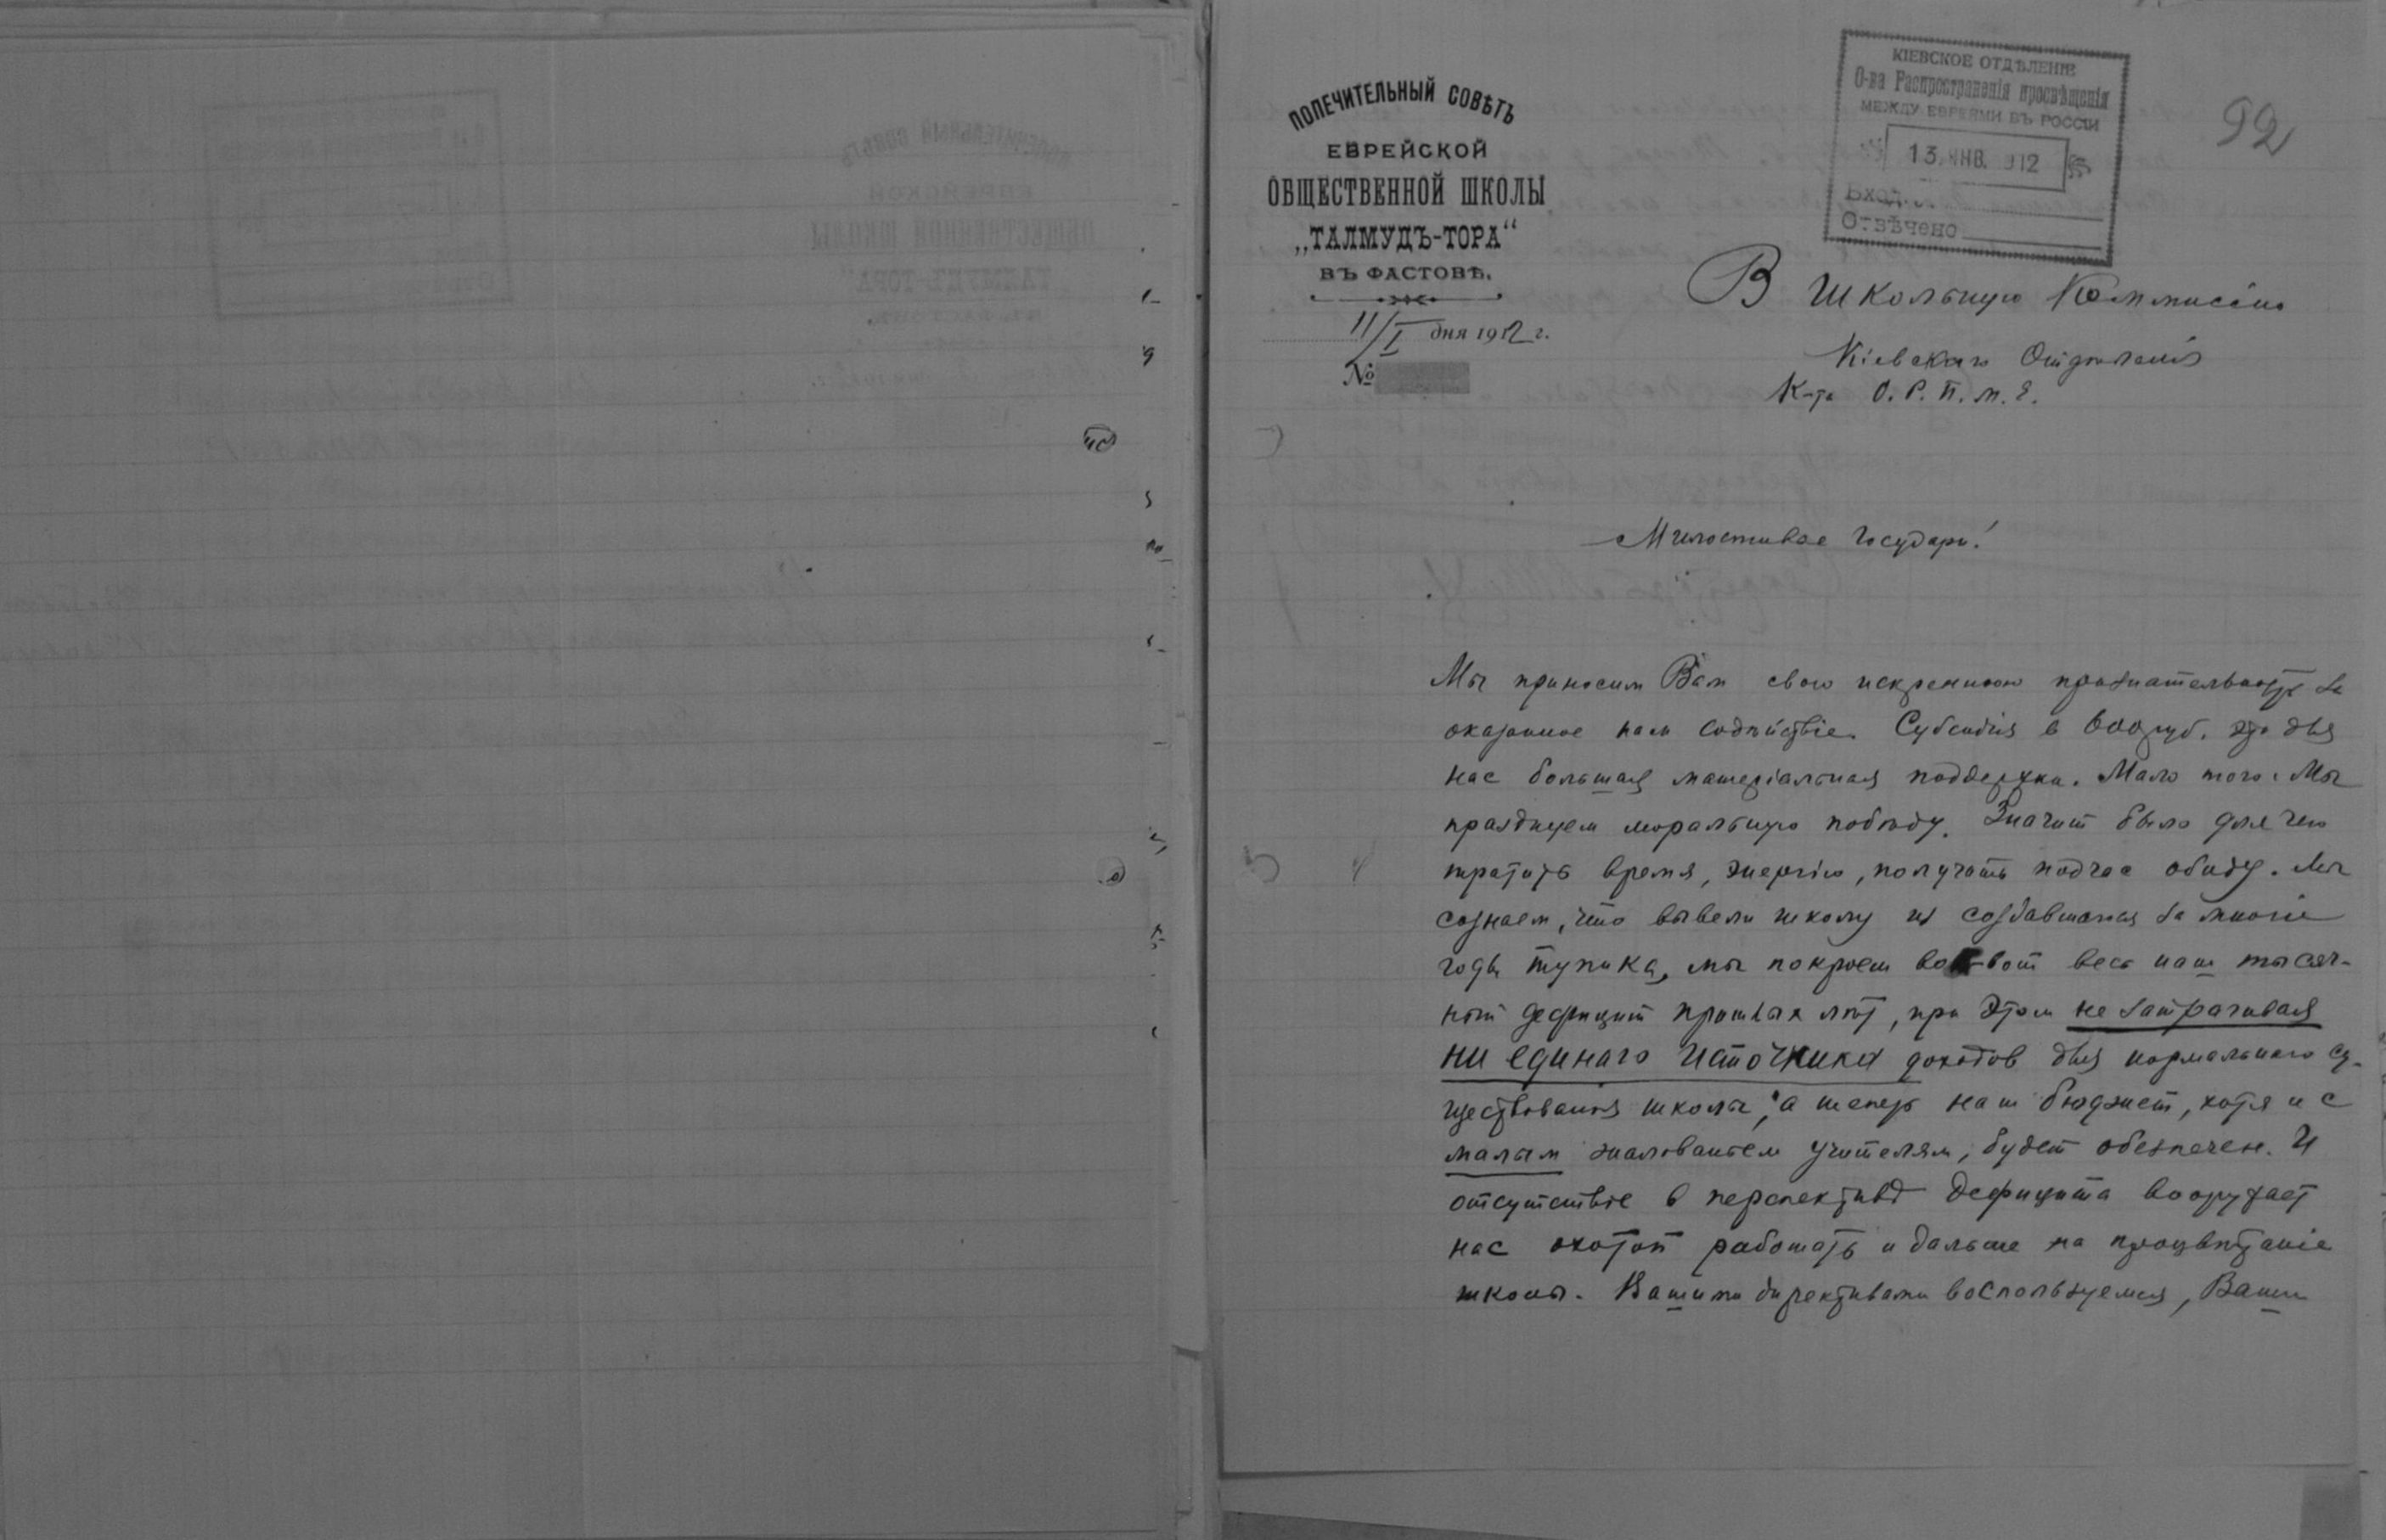 ПОПЕЧИТЕЛЬНЫЙ СОВѢТЪ
ЕВРЕЙСКОЙ
ОБЩЕСТВЕННОЙ ШКОЛЫ
„ТАЛМУДЪ-ТОРА“
ВЪ ФАСТОВѢ.
11/I дня 1912 г.
№
КІЕВСКОЕ ОТДѢЛЕНІЕ
О-ва Распространенія просвѣщенія
МЕЖДУ ЕВРЕЯМИ ВЪ РОССІИ
13 ЯНВ. 912
Вход. №
Отвѣчено
92
В Школьную Коммиссію
Кіевскаго Отдѣленія
К-та О. Р. П. м. Е.
Милостивые Государи!
Мы приносим Вам свою искреннюю признательность за
оказанное нам содѣйствіе. Субсидія в 600 руб. это для
нас большая матеріальная поддержка. Мало того. Мы
празднуем моральную побѣду. Значит было для чего
тратить время, энергію, получать подчас обиду. Мы
сознаем, что вывели школу из создавшагося за многіе
годы тупика, мы покроем вот-вот весь наш тысяч-
ный дефицит прошлых лѣт, при этом не затрачивая
ни единаго источника доходов для нормальнаго су-
ществованія школы, а теперь наш бюджет, хотя и с
малым жалованьем учителям, будет обезпечен. И
отсутствіе в перспективѣ дефицита вооружает
нас охотой работать и дальше на процвѣтаніе
школы. Вашими директивами воспользуемся, Ваши